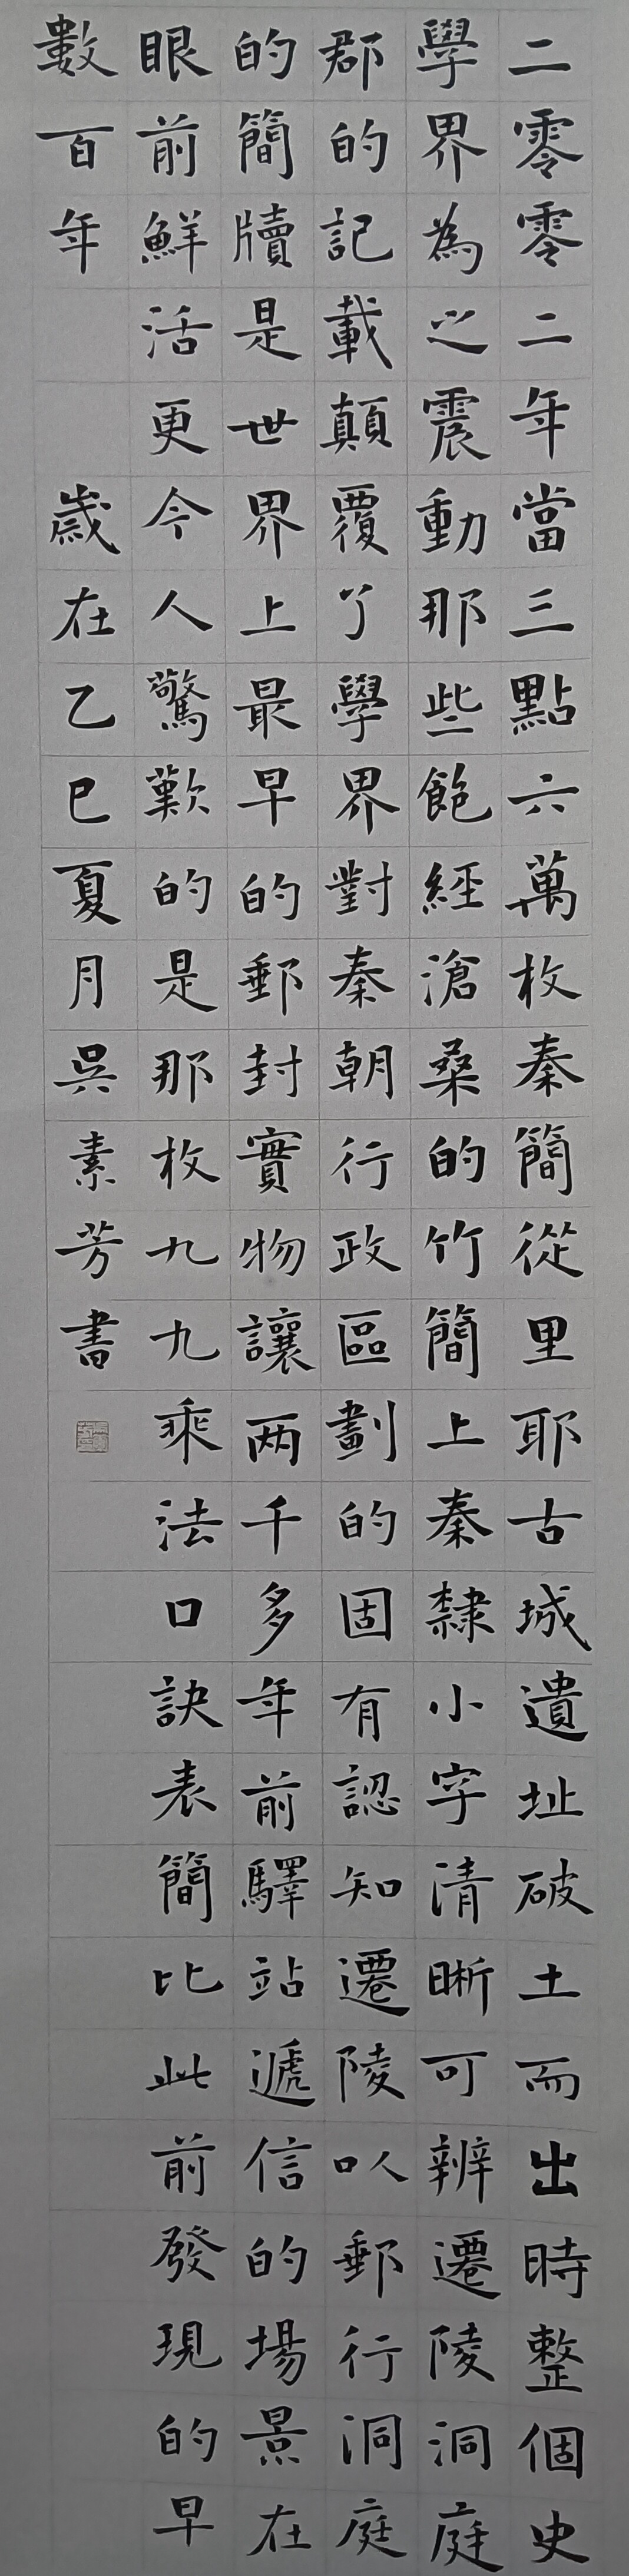 二零零二年當三點六萬枚秦簡從里耶古城遺址破土而出時整個史
學界為之震動那些飽經滄桑的竹簡上秦隸小字清晰可辨遷陵洞庭
郡的記載顛覆了學界對秦朝行政區劃的固有認知遷陵以郵行洞庭
的簡牘是世界上最早的郵封實物讓两千多年前驛站遞信的場景在
眼前鮮活更今人驚歎的是那枚九九乘法口訣表簡比此前發現的早
數百年
歲在乙巳夏月吳素芳書